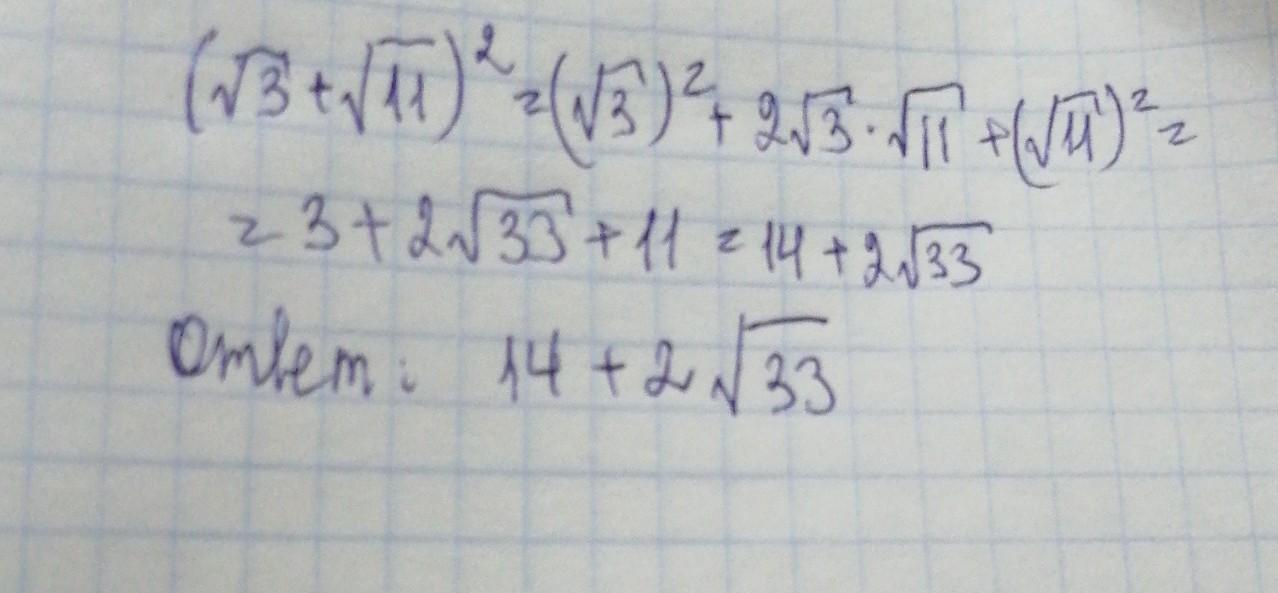 (√3 + √11)² = (√3)² + 2√3 · √11 + (√11)² =
= 3 + 2√33 + 11 = 14 + 2√33
Ответ: 14 + 2√33